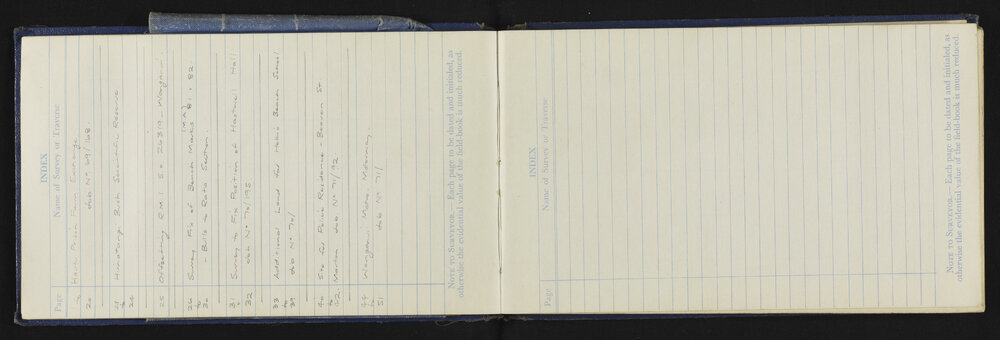 INDEX
Page Name of Survey or Traverse
1 to Hautu Prison Farm Exchange
20 Job No 69/168.
21 to Himatangi Bush Scientific Reserve
24
25 Offsetting R.M. 1 S.O. 26319 -
26 to Survey Fix of Bench Marks (MA) 81, 82
30 - Bulls to Rata Section.
31 to Survey to Fix Position of Hall
32 Job No 70/195
33 to Additional Land for Beach School
39 Job No 70/
40 to Site for Police Residence -
42. Marton Job No 71/92
44 to Wanganui
51 Job No 71/
NOTE TO SURVEYOR.—Each page to be dated and initialed, as
otherwise the evidential value of the field-book is much reduced.
INDEX
Page Name of Survey or Traverse
NOTE TO SURVEYOR.—Each page to be dated and initialed, as
otherwise the evidential value of the field-book is much reduced.